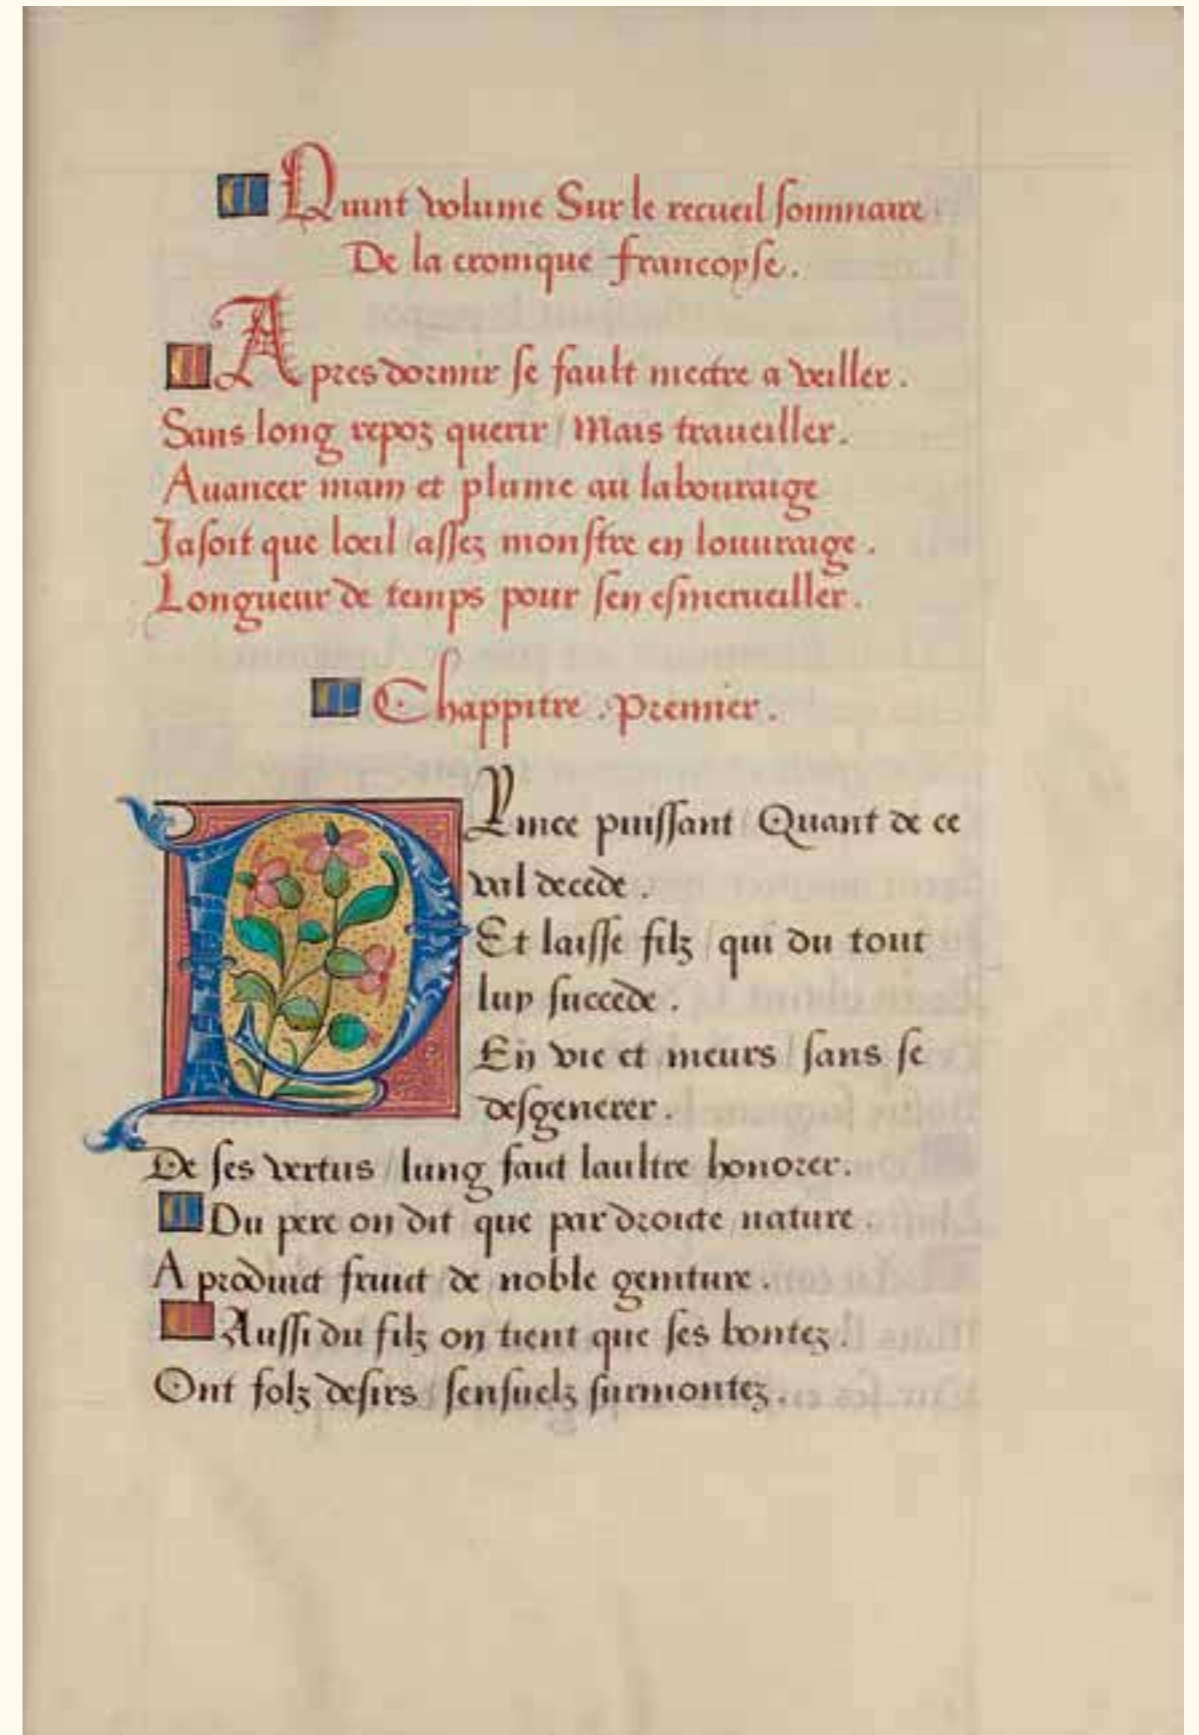 Quint volume Sur le recueil sommaire
De la cronique francoyse.
Apres dormir se fault mectre a veiller.
Sans long repoz querir / Mais traueiller.
Auancer main et plume au labouraige
Jasoit que loeil / assez monstre en louuraige.
Longueur de temps pour sen esmerueiller.
Chappitre .premier.
Prince puissant / Quant de ce
val decede.
Et laisse filz / qui du tout
luy succede.
En vie et meurs / sans se
desgenerer.
De ses vertus / lung faict laultre honorer.
Du pere on dit que par droicte nature.
A produict fruict de noble geniture.
Aussi du filz on tient que ses bontez.
Ont folz desirs / sensuelz surmontez.